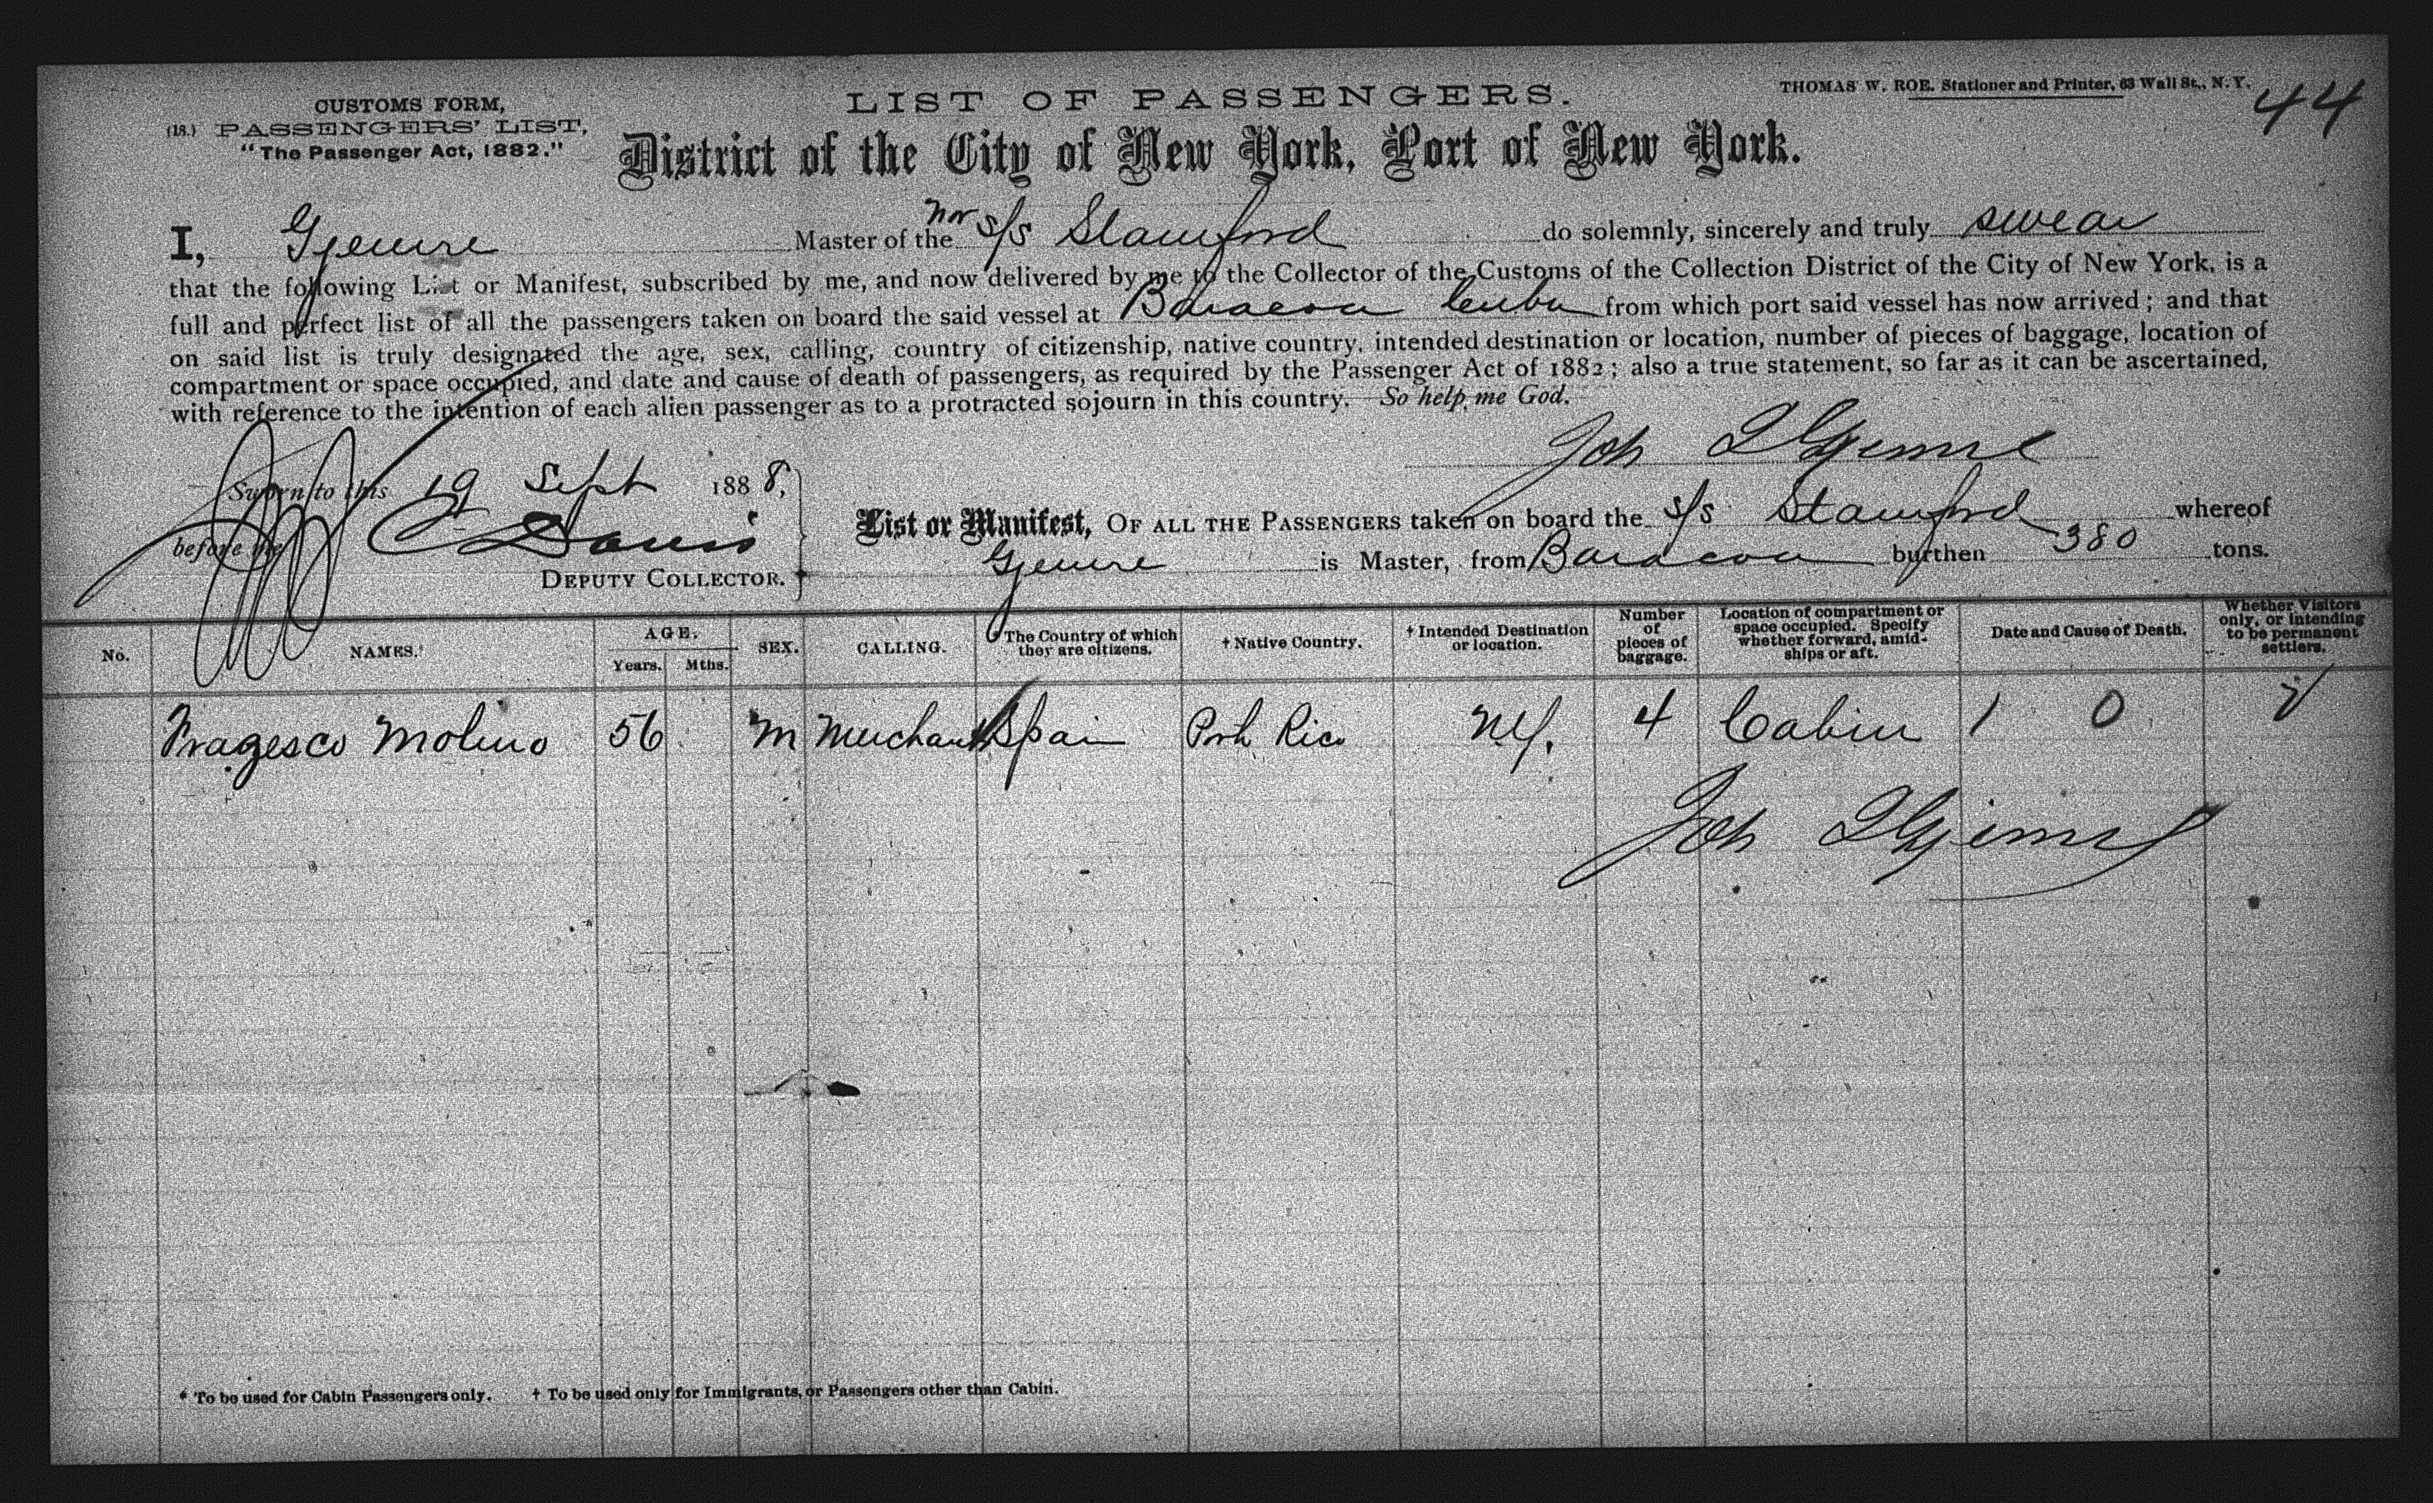 THOMAS W. ROE. Stationer and Printer, 63 Wall St., N. Y.
44
CUSTOMS FORM,
(18.) PASSENGERS' LIST,
"The Passenger Act, 1882."
LIST OF PASSENGERS.
District of the City of New York, Port of New York.
I, Master of the Nor s/s Stamford do solemnly, sincerely and truly swear
that the following List or Manifest, subscribed by me, and now delivered by me to the Collector of the Customs of the Collection District of the City of New York, is a
full and perfect list of all the passengers taken on board the said vessel at Baracoa Cuba from which port said vessel has now arrived; and that
on said list is truly designated the age, sex, calling, country of citizenship, native country, intended destination or location, number of pieces of baggage, location of
compartment or space occupied, and date and cause of death of passengers, as required by the Passenger Act of 1882; also a true statement, so far as it can be ascertained,
with reference to the intention of each alien passenger as to a protracted sojourn in this country. So help me God.
Joh
Sworn to this 19 Sept 1888,
before me Davis
DEPUTY COLLECTOR.
List or Manifest, OF ALL THE PASSENGERS taken on board the s/s Stamford whereof
is Master, from Baracoa burthen 380 tons.
No. NAMES. AGE. Years. Mths. SEX. CALLING. The Country of which they are citizens. † Native Country. † Intended Destination or location. Number of pieces of baggage. Location of compartment or space occupied. Specify whether forward, amidships or aft. Date and Cause of Death. Whether Visitors only, or intending to be permanent settlers.
Molino 56 M Merchant Spain Porto Rico NY. 4 Cabin 1 0
Joh
* To be used for Cabin Passengers only. † To be used only for Immigrants, or Passengers other than Cabin.